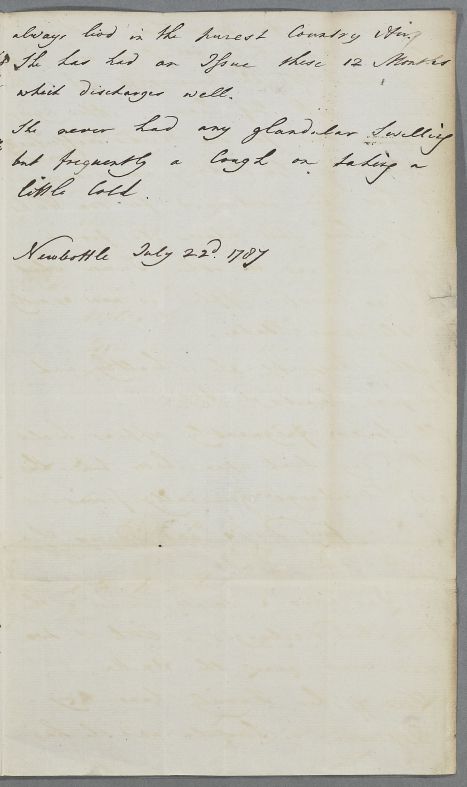 always livd in the purest Country Air,
She has had an Issue these 12 Months
which discharges well.
She never had any glandular Swelling
but frequently a Cough on taking a
little Cold.
Newbottle July 22d. 1787